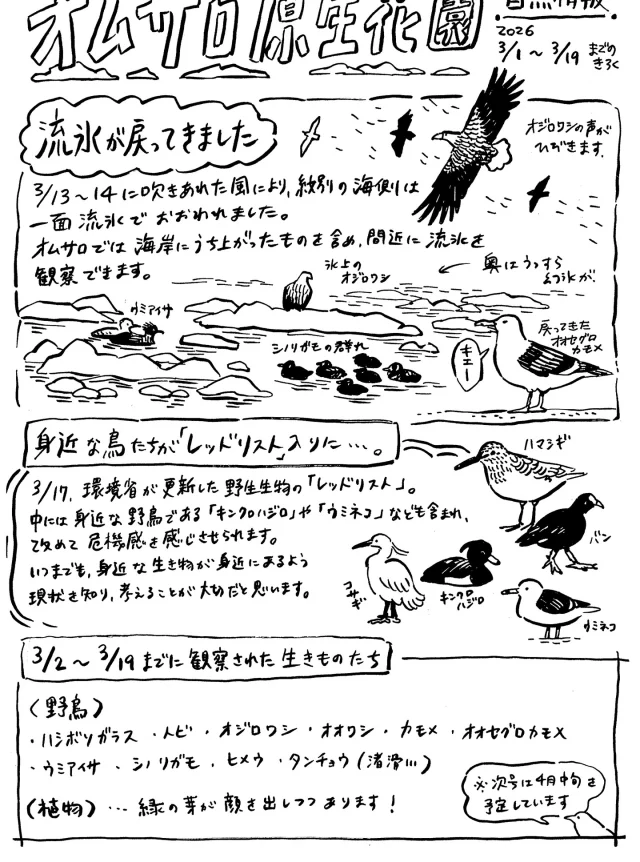 オムサロ原生花園
自然情報
2026
3/1～3/19 までの
きろく
流氷が戻ってきました
オジロワシの声が
ひびきます。
3/13～14に吹きあれた風により、紋別の海側は
一面流氷でおおわれました。
オムサロでは海岸にうち上がったものを含め、間近に流氷を
観察できます。
氷上の
オジロワシ
奥はうっすら
幻氷が。
ウミアイサ
シノリガモの群れ
キュー
戻ってきた
オオセグロ
カモメ
身近な鳥たちが「レッドリスト」入りに…。
3/17、環境省が更新した野生生物の「レッドリスト」。
中には身近な野鳥である「キンクロハジロ」や「ウミネコ」なども含まれ、
改めて危機感を感じさせられます。
いつまでも、身近な生き物が身近にあるよう
現状を知り、考えることが大切だと思います。
ハマシギ
バン
コサギ
キンクロ
ハジロ
ウミネコ
3/2～3/19までに観察された生きものたち
(野鳥)
・ハシボソガラス ・トビ ・オジロワシ ・オオワシ ・カモメ ・オオセグロカモメ
・ウミアイサ ・シノリガモ ・ヒメウ ・タンチョウ(渚滑川)
(植物) … 緑の芽が顔を出しつつあります!
※次号は4月中旬を
予定しています